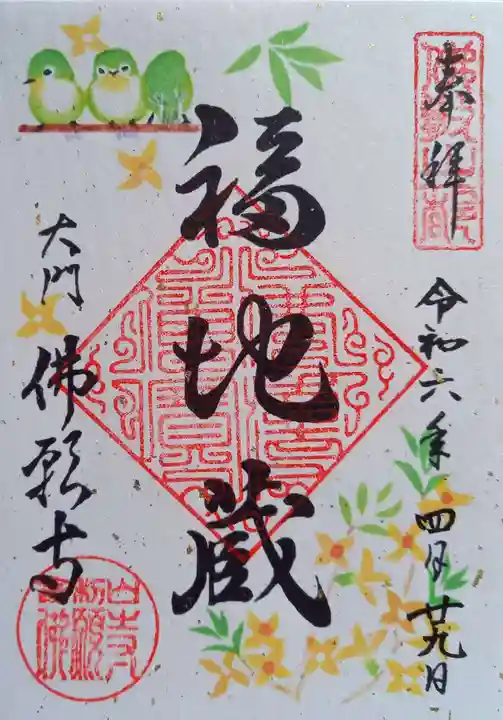 奉拝
令和六年 四月 廿九日
福地蔵
大門 佛願寺